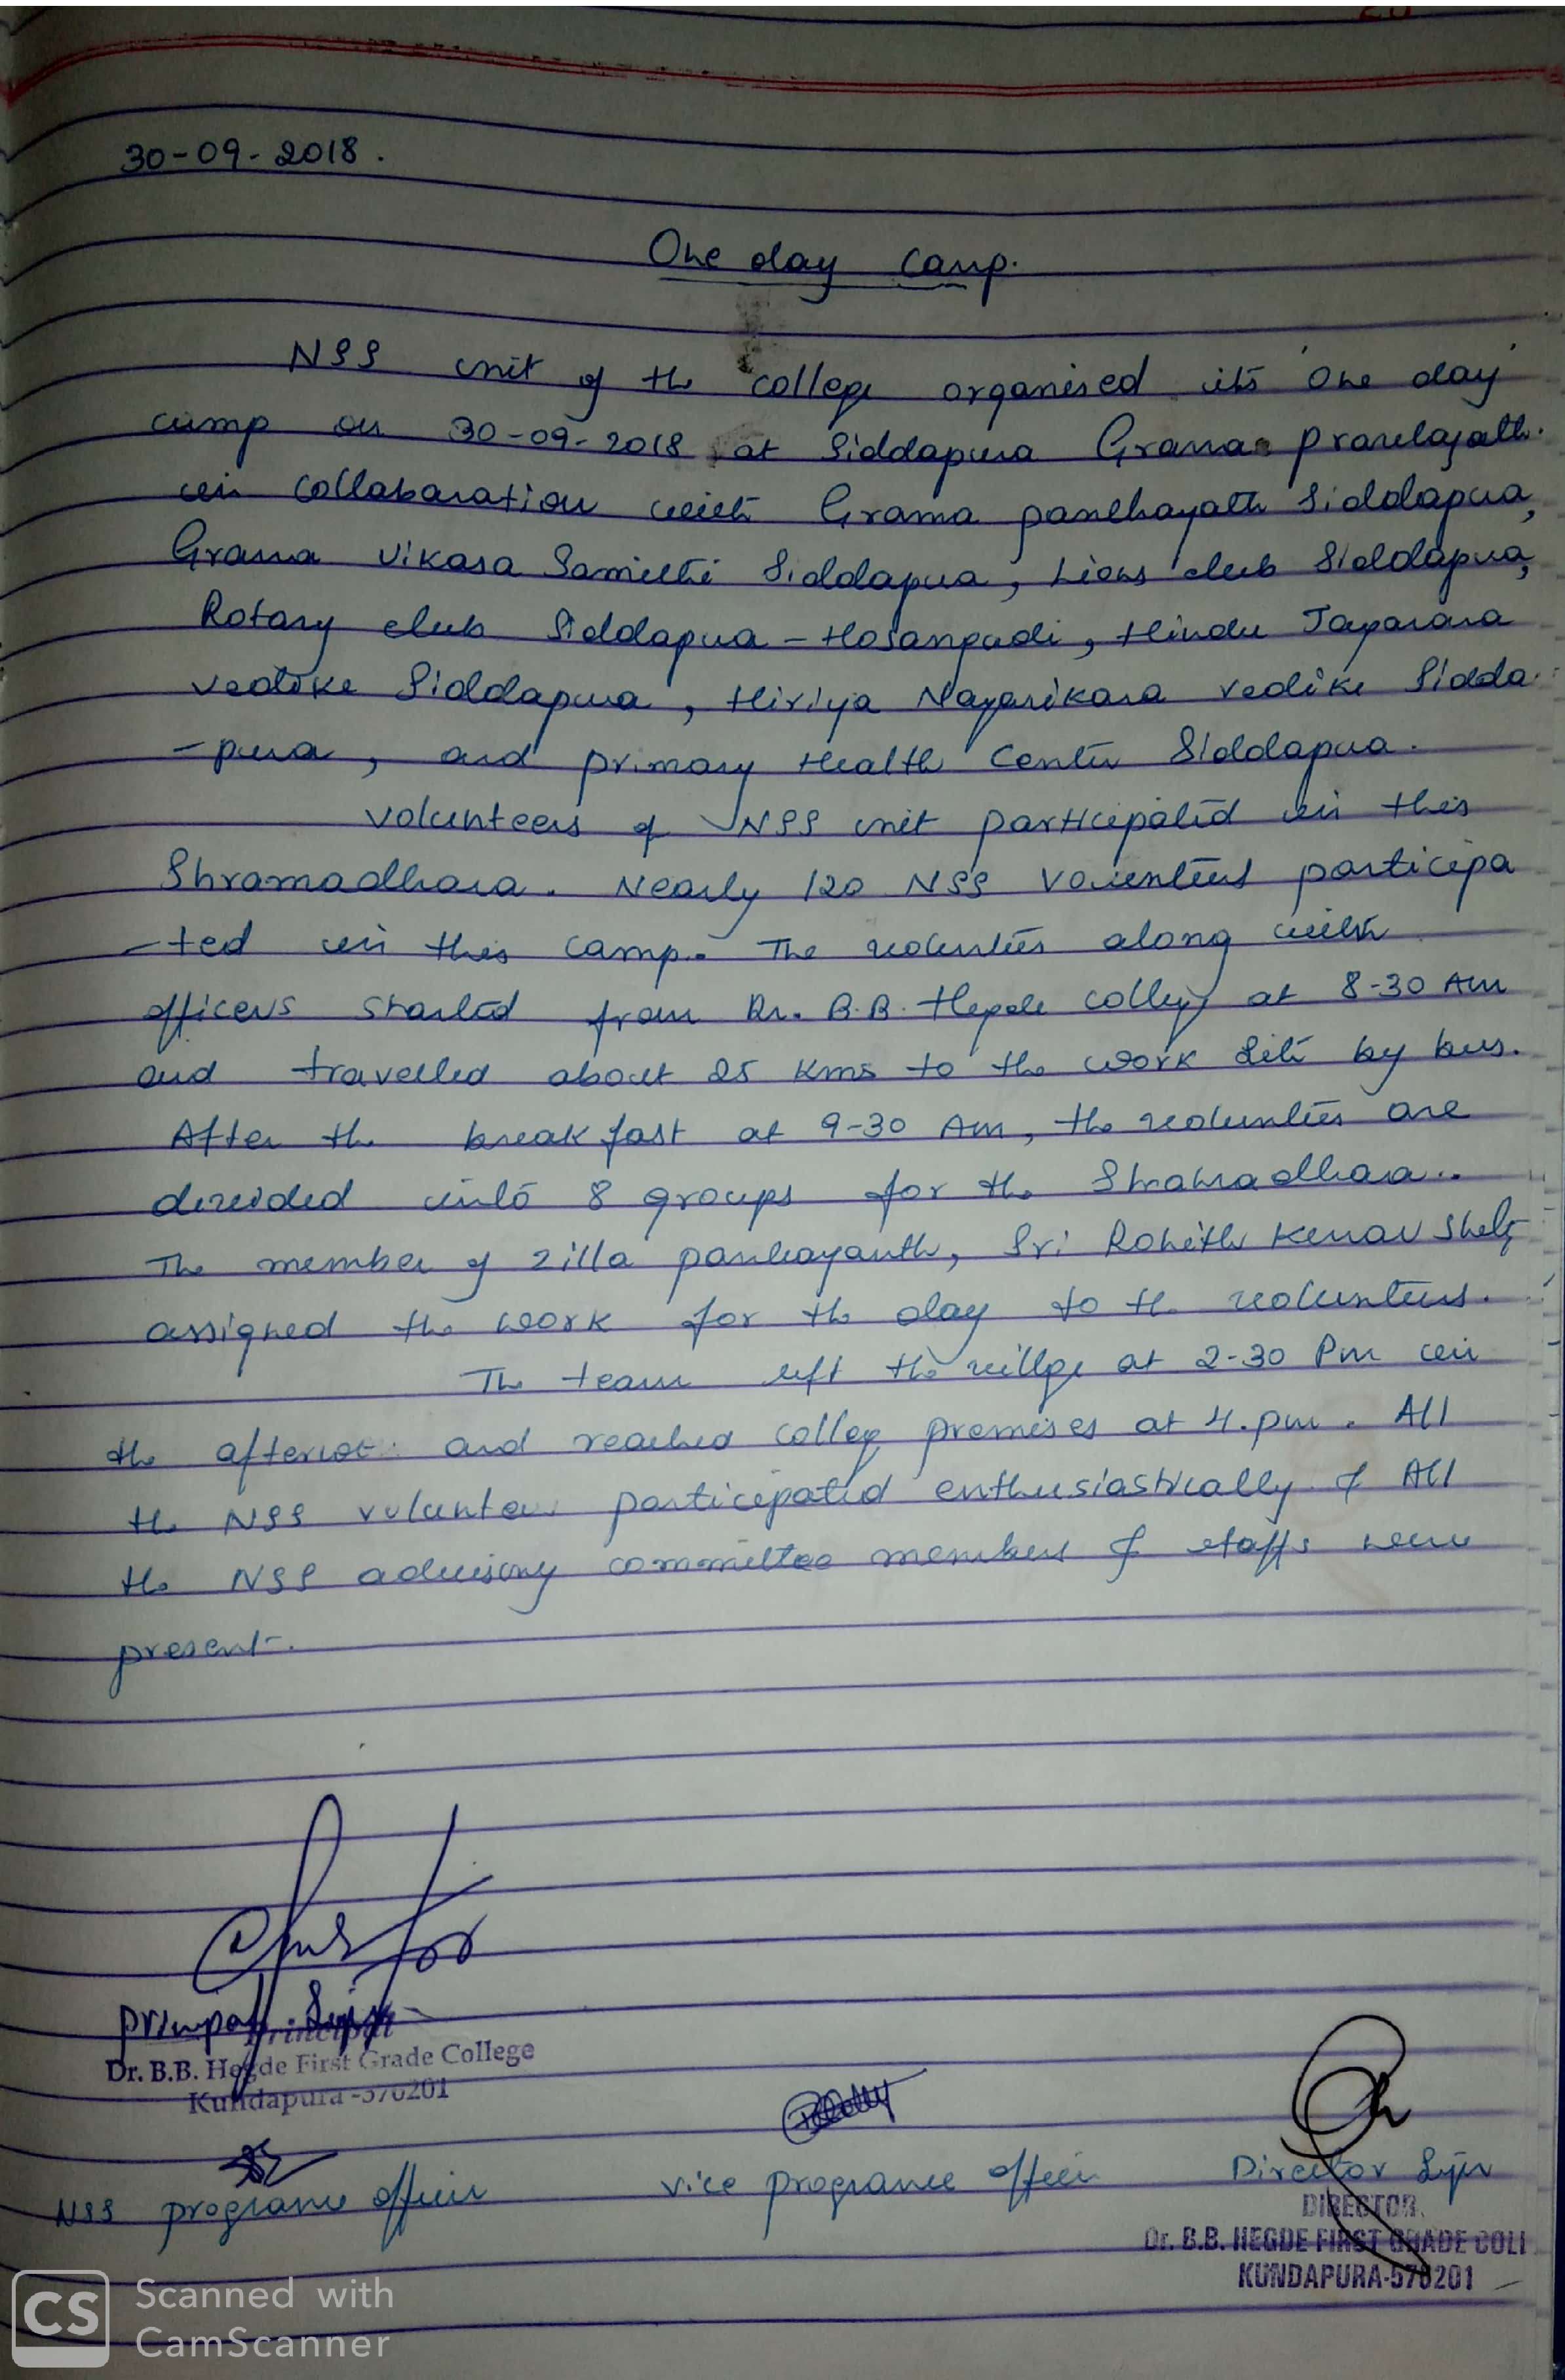 30-09-2018.
One day camp.
NSS unit of the college organised its 'One day'
camp on 30-09-2018 at Siddapura Grama
in collabaration with Grama panchayath Siddapura,
Grama Vikasa Samithi Siddapura, Lions club Siddapura,
Rotary club Siddapura - Hosangadi, Hindu Jagarana
vedike Siddapura, Hiriya Nagarikara vedike Sidda
-pura, and primary Health Center Siddapura.
volunteers of NSS unit participated in this
Shramadhana. Nearly 120 NSS participa
-ted in this camp. The volunters along with
officers started from Dr. B.B. Hegde college at 8-30 Am
and travelled about 25 Kms to the work site by bus.
After the breakfast at 9-30 Am, the volunters are
devided into 8 groups for the Shramadhana..
The member of zilla Sri Rohith Kumar Shetty
assigned the work for the day to the volunteers.
The team left the villge at 2-30 Pm in
the and reached college premises at 4.pm. All
the NSS participated enthusiastically & All
the NSS advisory committee members & staffs were
present.
Principal
Dr. B.B. Hegde First Grade College
Kundapura -576201
NSS programe officer
vice programe officer
Director
DIRECTOR
Dr. B.B. HEGDE FIRST GRADE COLL
KUNDAPURA-576201
CS Scanned with
CamScanner